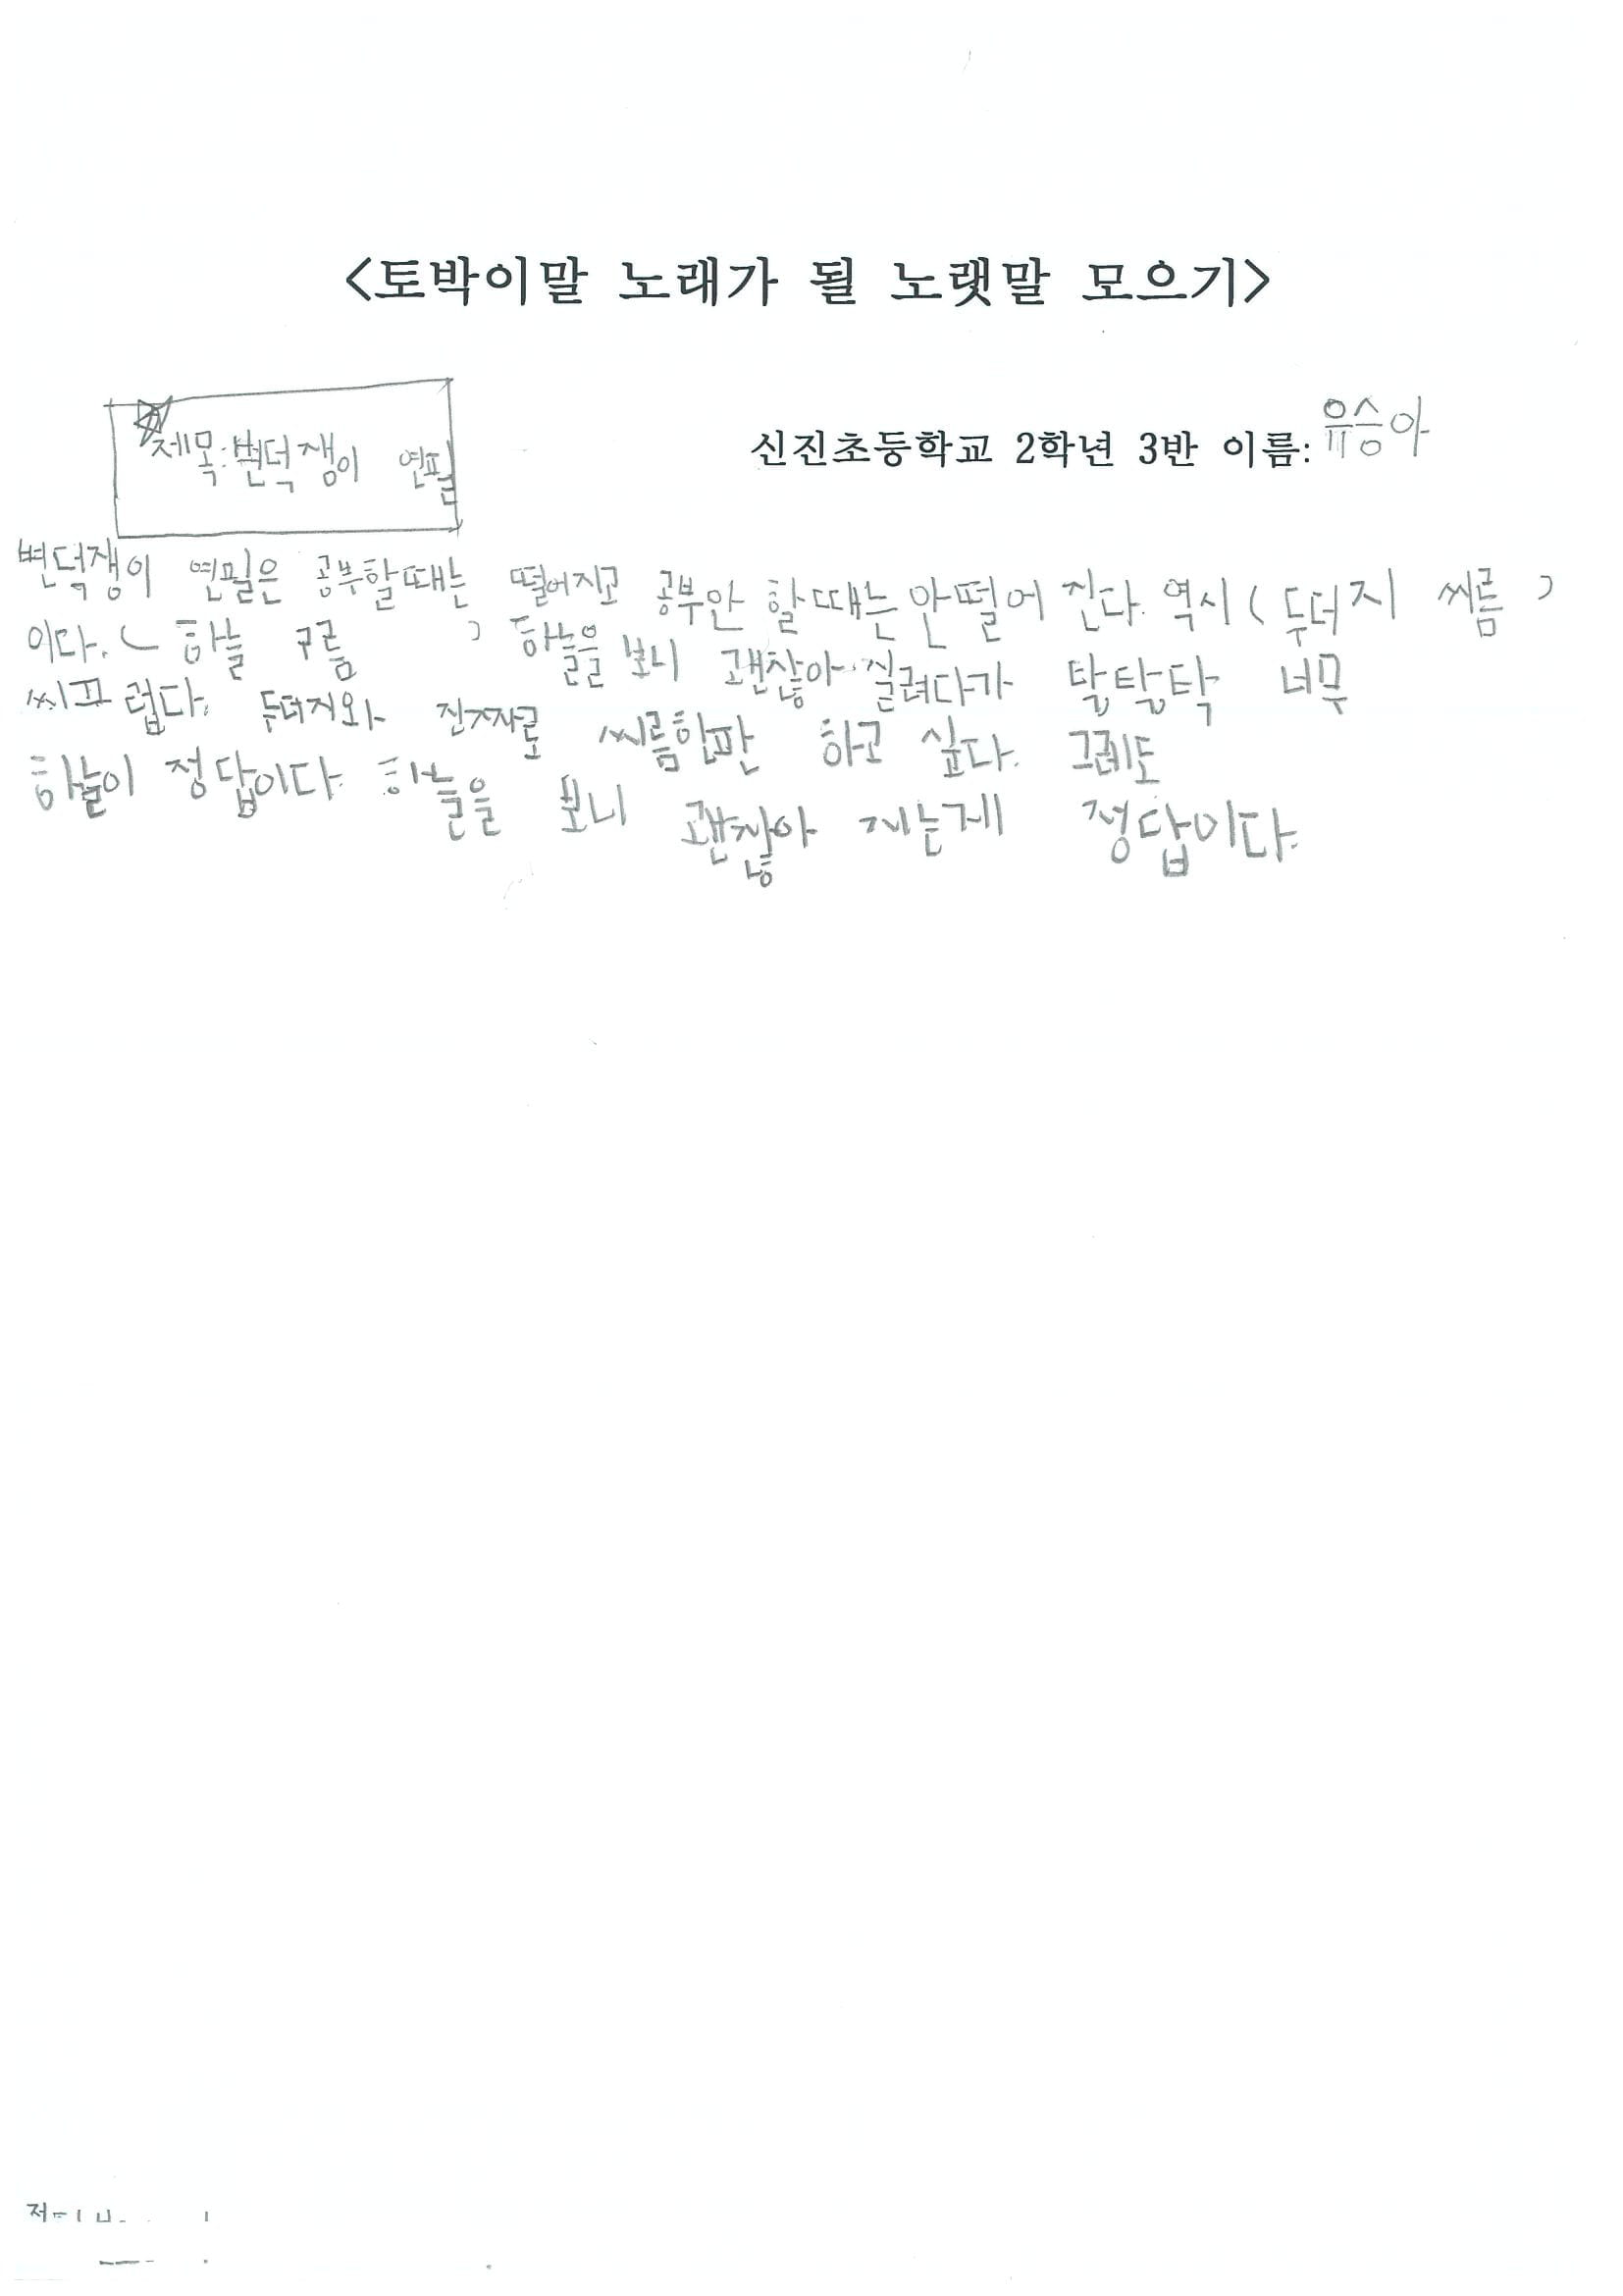 <토박이말 노래가 될 노랫말 모으기>
제목:변덕쟁이 연필
신진초등학교 2학년 3반 이름: 유승아
변덕쟁이 연필은 공부할때는 떨어지고 공부안 할때는 안떨어 진다. 역시( 두더지 씨름 )
이다. ( 하늘 구름 ) 하늘을 보니 괜찮아 질려다가 탈탈탁 너무
씨끄럽다. 두더지와 진짜로 씨름한판 하고 싶다. 그레도
하늘이 정답이다. 하늘을 보니 괜찮아 지는게 정답이다.